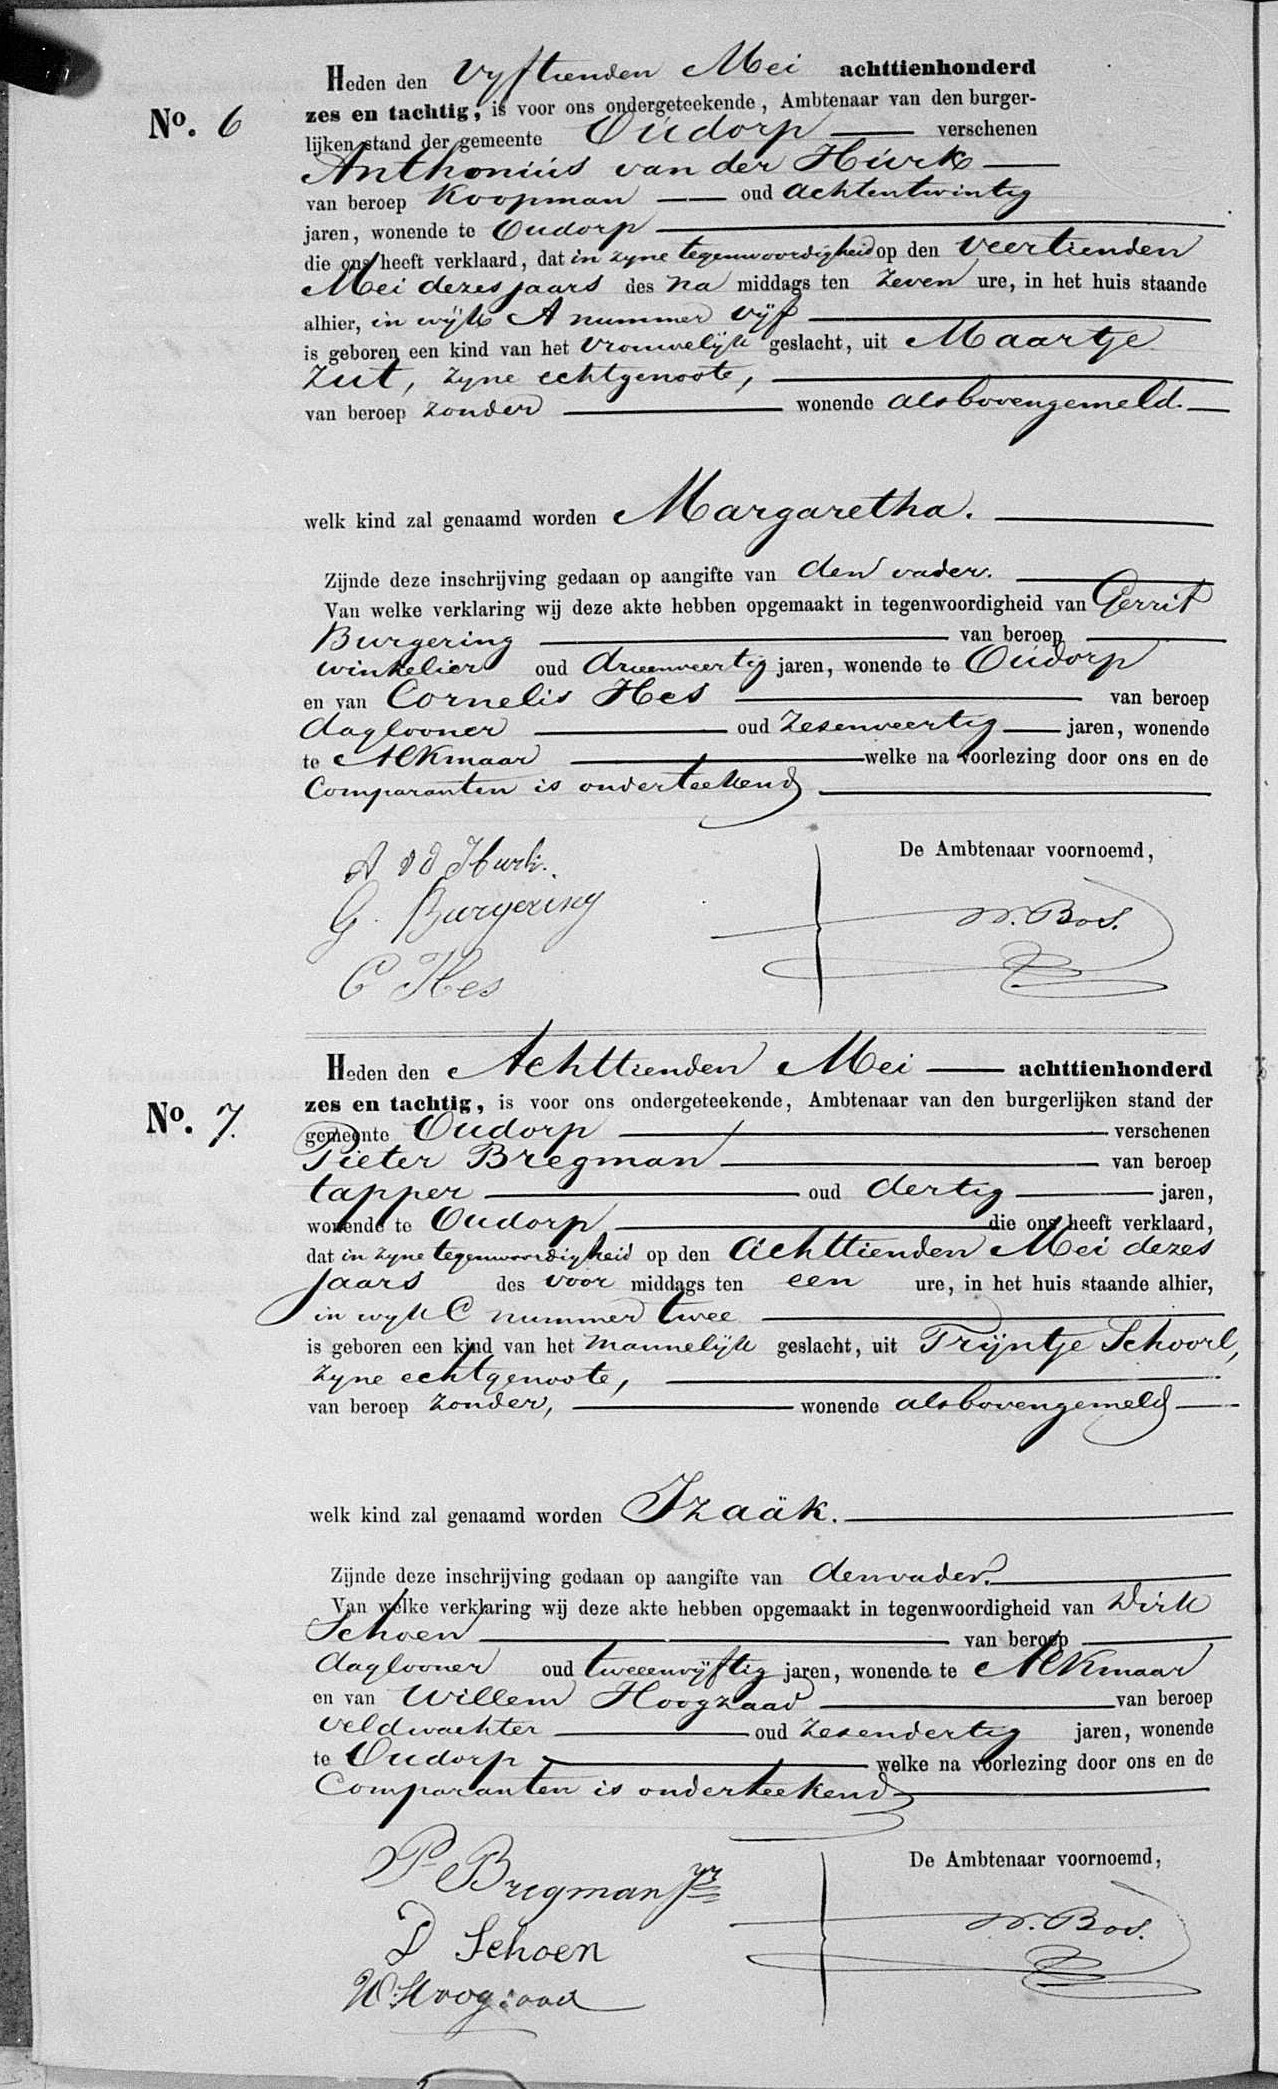 Heden den Vyftienden Mei achttienhonderd
No. 6 zes en tachtig, is voor ons ondergeteekende, Ambtenaar van den burger-
lijken stand der gemeente Oudorp verschenen
Anthonius van der Hurk
van beroep Koopman oud achtentwintig
jaren, wonende te Oudorp
die ons heeft verklaard, dat in zyne tegenwoordigheid op den veertienden
Mei dezes jaars des na middags ten zeven ure, in het huis staande
alhier, in wijk A nummer vijf
is geboren een kind van het vrouwelijk geslacht, uit Maartje
Zut, zyne echtgenoote,
van beroep zonder wonende alsbovengemeld.
welk kind zal genaamd worden Margaretha.
Zijnde deze inschrijving gedaan op aangifte van den vader.
Van welke verklaring wij deze akte hebben opgemaakt in tegenwoordigheid van Gerrit
Burgering van beroep
winkelier oud drieenveertig jaren, wonende te Oudorp
en van Cornelis Hes van beroep
daglooner oud zesenveertig jaren, wonende
te Alkmaar welke na voorlezing door ons en de
Comparanten is onderteekend
De Ambtenaar voornoemd,
A v d Hurk.
G. Burgering
W. Bos.
C Hes
Heden den Achttienden Mei achttienhonderd
No. 7. zes en tachtig, is voor ons ondergeteekende, Ambtenaar van den burgerlijken stand der
gemeente Oudorp verschenen
Pieter Bregman van beroep
tapper oud dertig jaren,
wonende te Oudorp die ons heeft verklaard,
dat in zyne tegenwoordigheid op den achttienden Mei dezes
jaars des voor middags ten een ure, in het huis staande alhier,
in wyk C nummer twee
is geboren een kind van het mannelijk geslacht, uit Trijntje Schoorl,
zyne echtgenoote,
van beroep zonder, wonende alsbovengemeld
welk kind zal genaamd worden Izaäk.
Zijnde deze inschrijving gedaan op aangifte van den vader.
Van welke verklaring wij deze akte hebben opgemaakt in tegenwoordigheid van Dirk
Schoen van beroep
daglooner oud tweeenvijftig jaren, wonende te Alkmaar
en van Willem Hoogzaad van beroep
veldwachter oud zesendertig jaren, wonende
te Oudorp welke na voorlezing door ons en de
Comparanten is onderteekend
De Ambtenaar voornoemd,
P Bregman Jr
W. Bos.
D Schoen
W. Hoogzaad